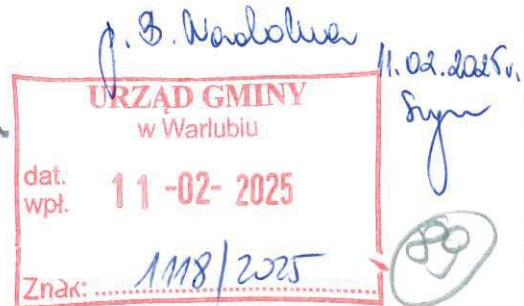 11.02.2025r.
URZĄD GMINY
w Warlubiu
dat.
wpł. 11 -02- 2025
Znak: 1118/2025